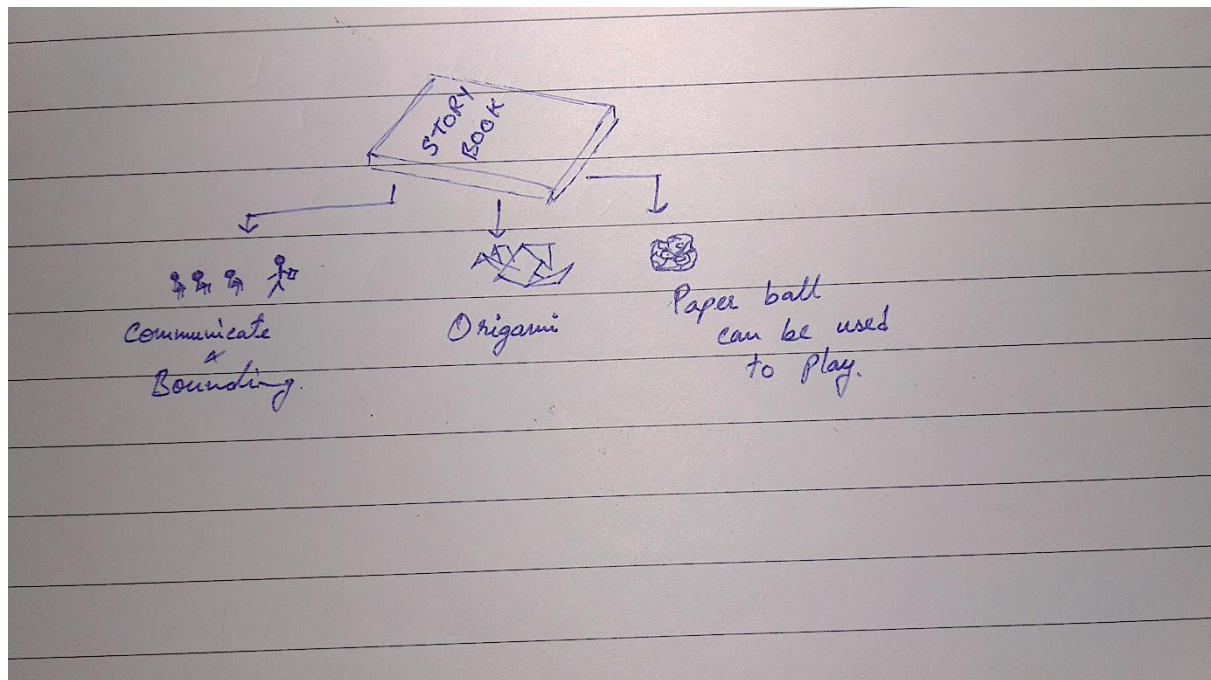 STORY
BOOK
Communicate
&
Bounding.
Origami
Paper ball
can be used
to play.